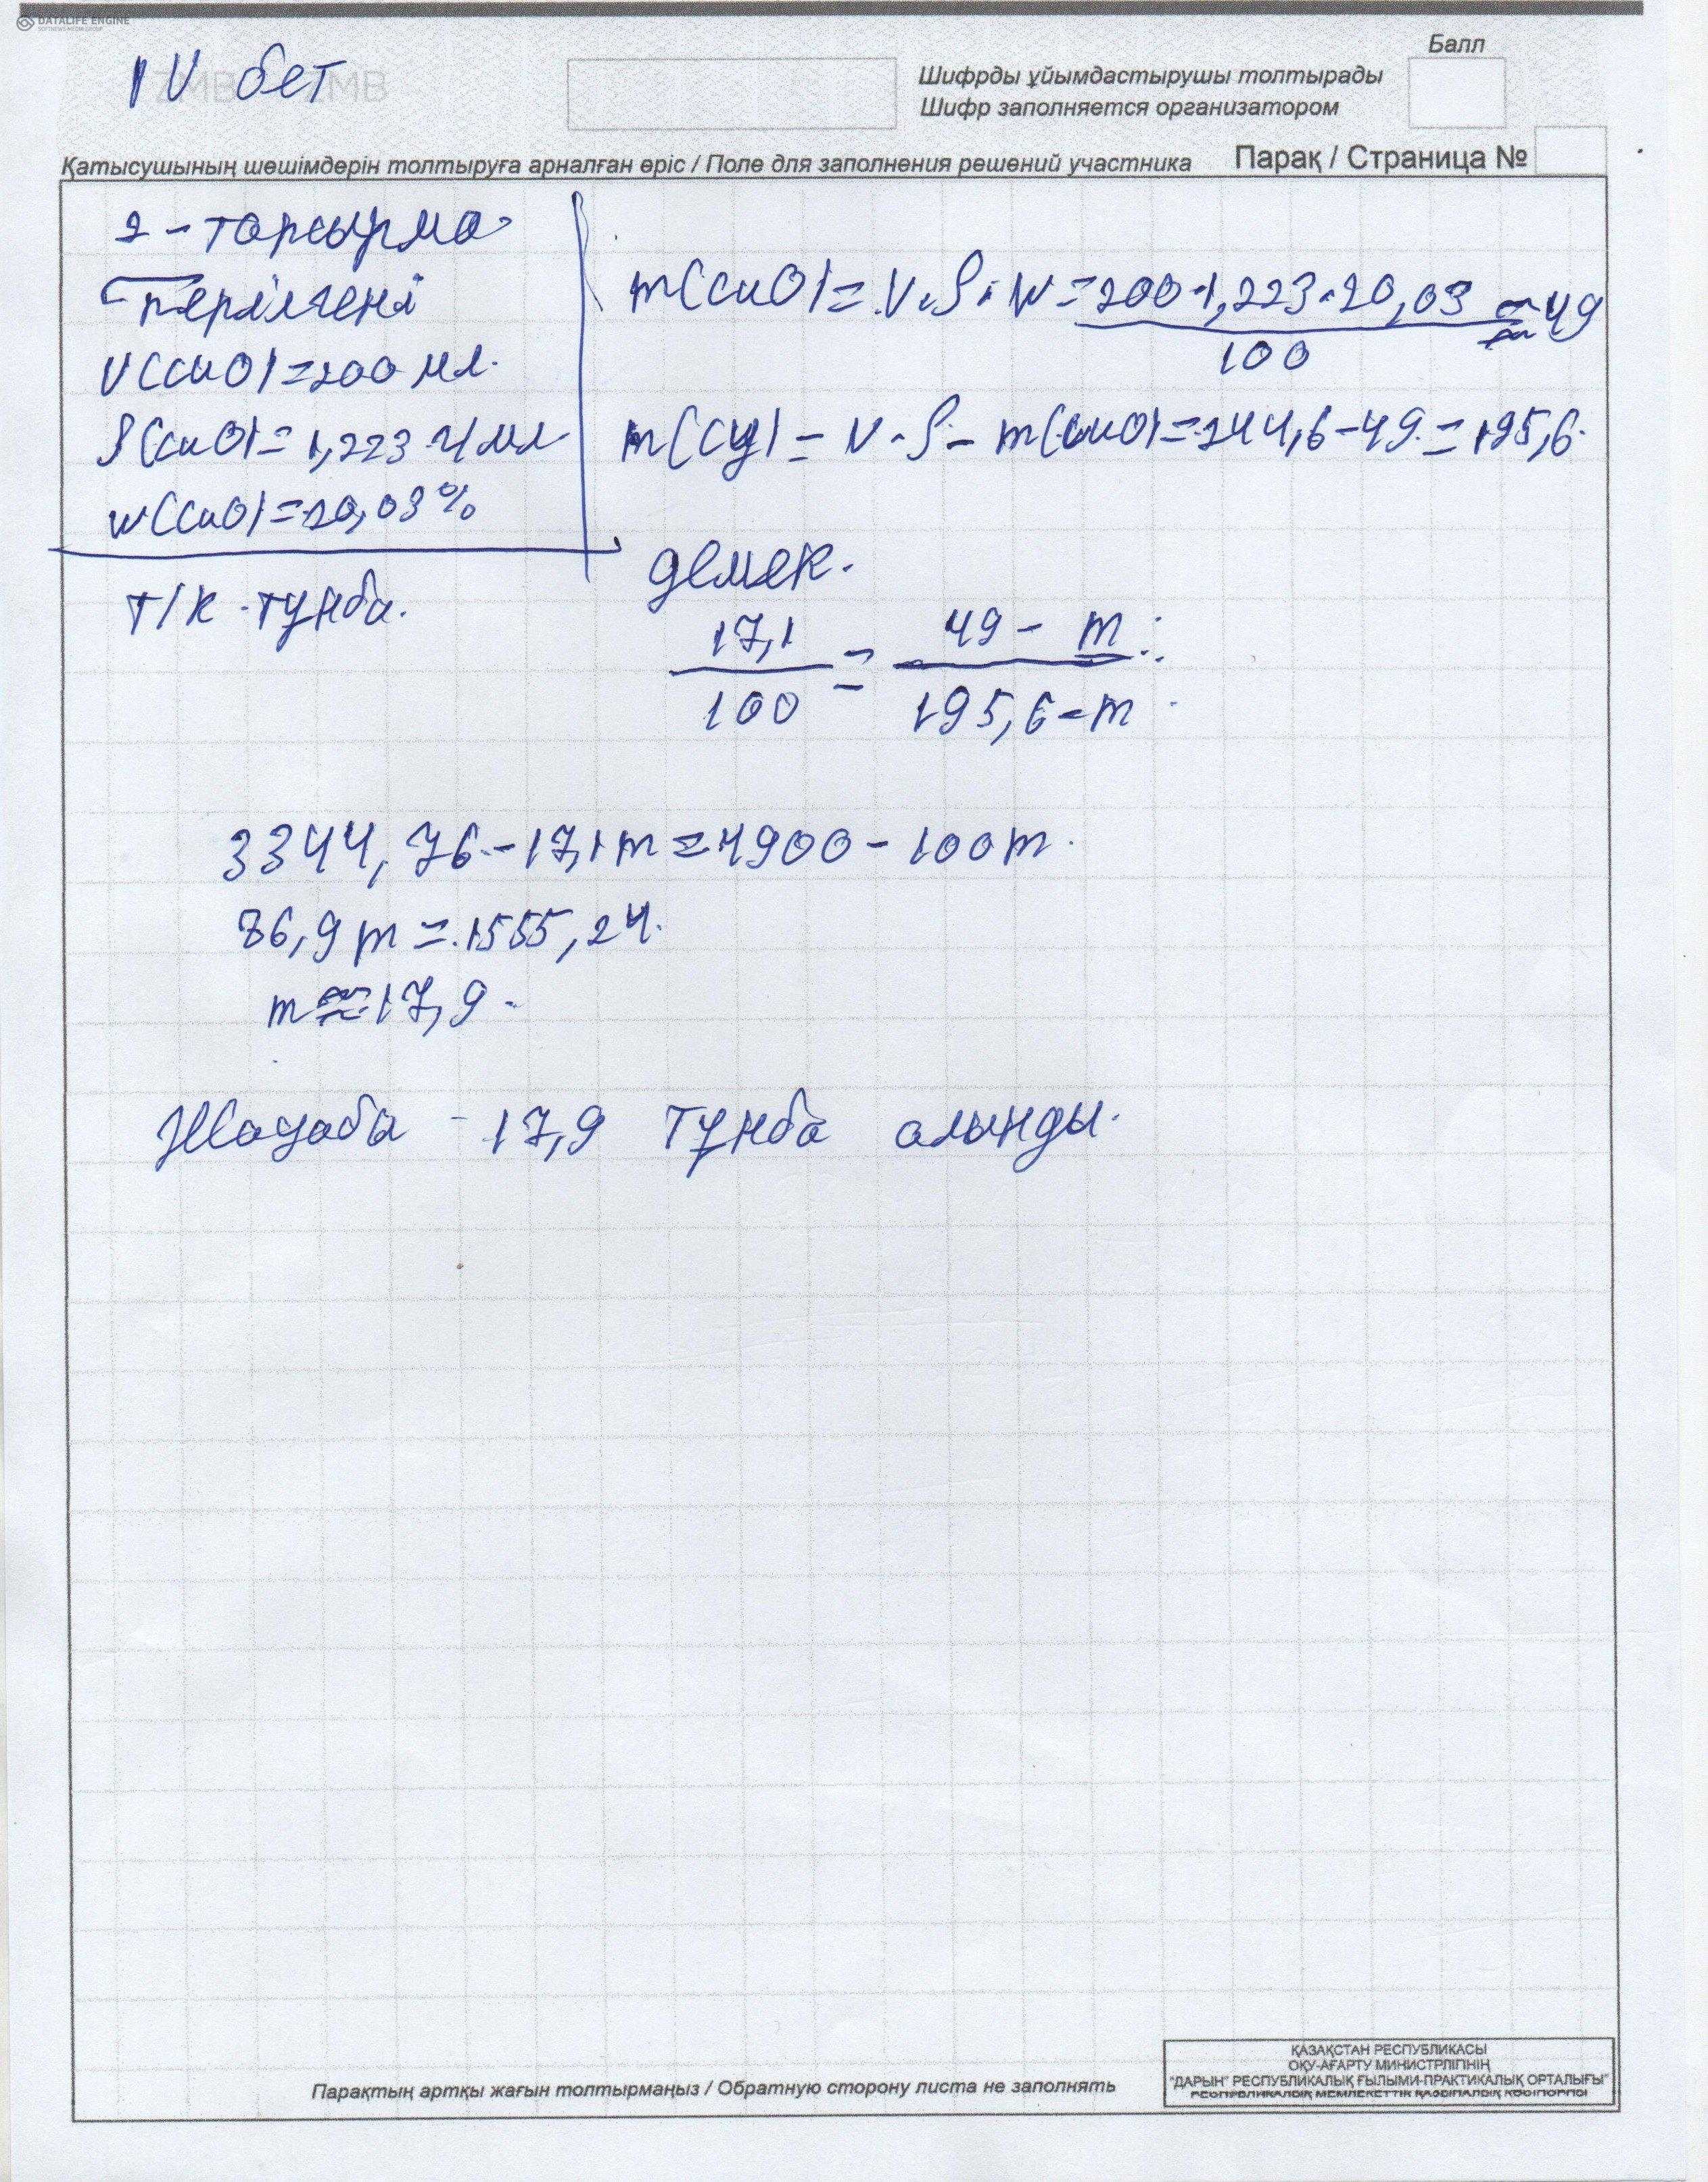 DATALIFE ENGINE
SOFTNEWS MEDIA GROUP
IV бет
Балл
Шифрды ұйымдастырушы толтырады
Шифр заполняется организатором
Қатысушының шешімдерін толтыруға арналған өріс / Поле для заполнения решений участника
Парақ / Страница №
2-тапсырма
Берілгені
V(CuO)=200 мл.
ρ(CuO)=1,223 г/мл
w(CuO)=20,03%
Т/к тұнба.
m(CuO)=V·ρ·w=200·1,223·20,03/100≈49
m(су)=V·ρ-m(CuO)=244,6-49=195,6
демек.
17,1/100=49-m/195,6-m
3344,76-17,1m=4900-100m.
86,9m=1555,24.
m≈17,9.
Жауабы - 17,9 тұнба алынды.
Парақтың артқы жағын толтырмаңыз / Обратную сторону листа не заполнять
ҚАЗАҚСТАН РЕСПУБЛИКАСЫ
ОҚУ-АҒАРТУ МИНИСТРЛІГІНІҢ
"ДАРЫН" РЕСПУБЛИКАЛЫҚ ҒЫЛЫМИ-ПРАКТИКАЛЫҚ ОРТАЛЫҒЫ"
РЕСПУБЛИКАЛЫҚ МЕМЛЕКЕТТІК ҚАЗЫНАЛЫҚ КӘСІПОРНЫ